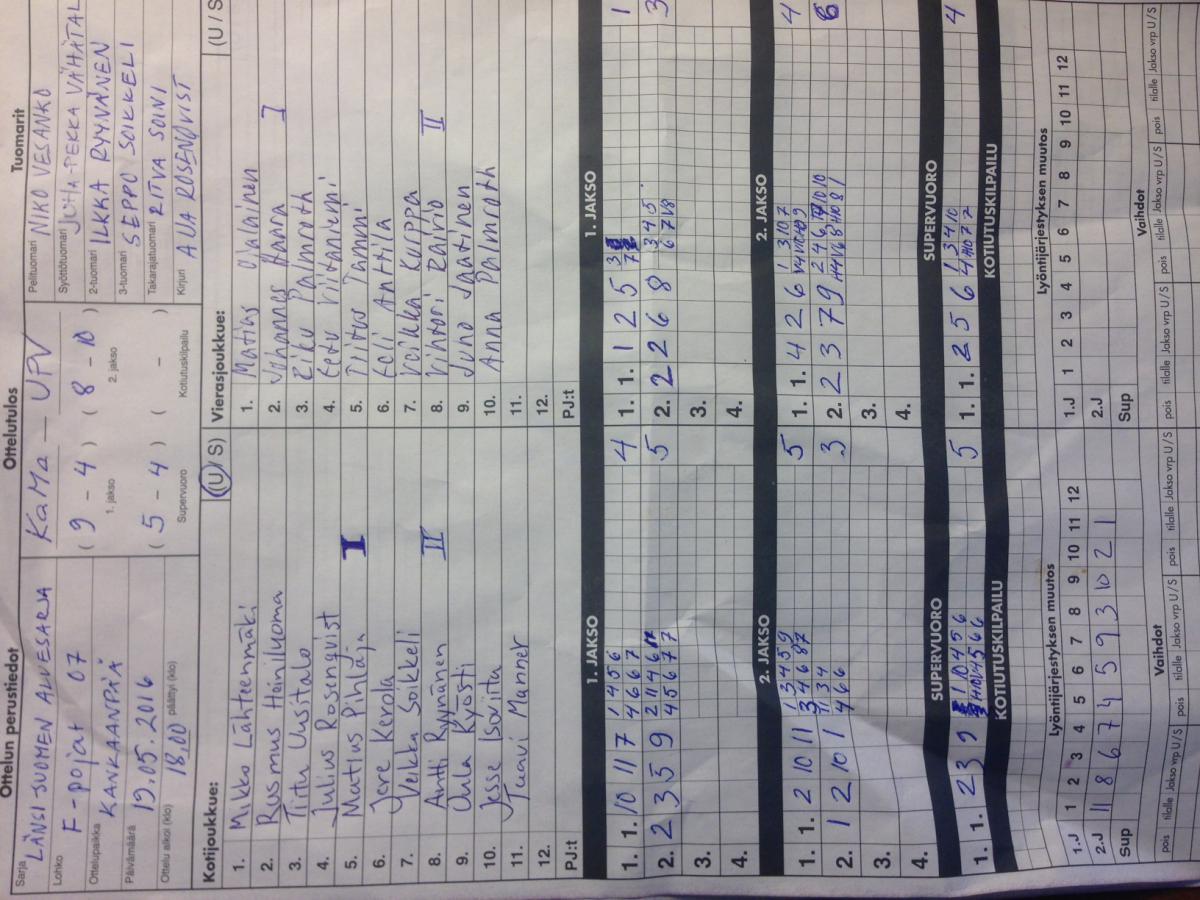 Ottelun perustiedot
Sarja LÄNSI-SUOMEN ALUESARJA
Lohko F-pojat 07
Ottelupaikka KANKAANPÄÄ
Päivämäärä 19.05.2016
Ottelu alkoi (klo) 18.00 päättyi (klo)
Ottelutulos
KaMa — UPV
( 9 - 4 ) ( 8 - 10 )
1. jakso 2. jakso
( 5 - 4 ) ( - )
Supervuoro Kotiutuskilpailu
Tuomarit
Pelituomari NIKO VESANKO
Syöttötuomari JUHA-PEKKA VÄHÄTAL
2-tuomari ILKKA RYYNÄNEN
3-tuomari SEPPO SOIKKELI
Takarajatuomari RITVA SOINI
Kirjuri AUA ROSENQVIST
Kotijoukkue: (U / S)
1. Mikko Lähteenmäki
2. Rasmus Heiniluoma
3. Tiitu Uusitalo
4. Julius Rosenqvist
5. Matius Pihlaja I
6. Jere Kerola
7. Veikka Soikkeli
8. Antti Ryynänen II
9. Onla Kyösti
10. Jesse Soviita
11. Tuuvi Manner
12.
PJ:t
Vierasjoukkue: (U / S
1. Matias Ojalainen
2. Johannes Hanra I
3. Riku Palmroth
4. Eetu Viitaniemi
5. Tiitus Tammi
6. Eeli Anttila
7. Veikka Kurppa
8. Vihtori Raivio II
9. Juho Jaatinen
10. Anna Palmroth
11.
12.
PJ:t
1. JAKSO
1. 1. 10 11 7 1 4 5 6 4 6 6 7 4
2. 2 3 5 9 5
3.
4.
1. JAKSO
1. 1. 1 2 5 1
2. 2 2 6 8 3 4 5 6 7 1 8 3
3.
4.
2. JAKSO
1. 1. 2 10 11 1 3 4 5 9 5
2. 1 2 10 1 1 3 4 4 6 6 3
3.
4.
2. JAKSO
1. 1. 4 2 6 1 3 10 7 4
2. 2 3 7 9 6
3.
4.
SUPERVUORO
1. 1. 2 3 9 5
KOTIUTUSKILPAILU
SUPERVUORO
1. 1. 2 5 6 1 3 4 10 4
KOTIUTUSKILPAILU
Lyöntijärjestyksen muutos
1 2 3 4 5 6 7 8 9 10 11 12
1.J
2.J 11 8 6 7 4 5 9 3 10 2 1
Sup
Lyöntijärjestyksen muutos
1 2 3 4 5 6 7 8 9 10 11 12
1.J
2.J
Sup
Vaihdot
pois tilalle Jakso vrp U / S pois tilalle Jakso vrp U / S pois tilalle Jakso vrp U / S
Vaihdot
pois tilalle Jakso vrp U / S pois tilalle Jakso vrp U / S pois tilalle Jakso vrp U / S